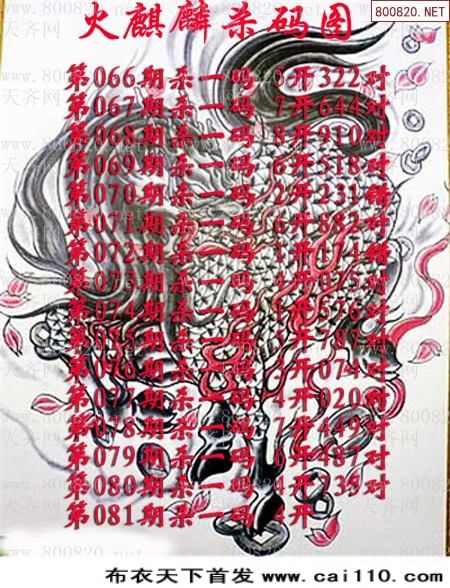 800820.NET
火麒麟杀码图
第066期杀一码 5开322对
第067期杀一码 7开644对
第068期杀一码 8开910对
第069期杀一码 6开518对
第070期杀一码 2开231错
第071期杀一码 6开882对
第072期杀一码 1开174错
第073期杀一码 4开075对
第074期杀一码 开576对
第075期杀一码 开787对
第076期杀一码 开074对
第077期杀一码 4开020对
第078期杀一码 7开449对
第079期杀一码 开487对
第080期杀一码 4开239对
第081期杀一码 4开
布衣天下首发 www.cai110.com